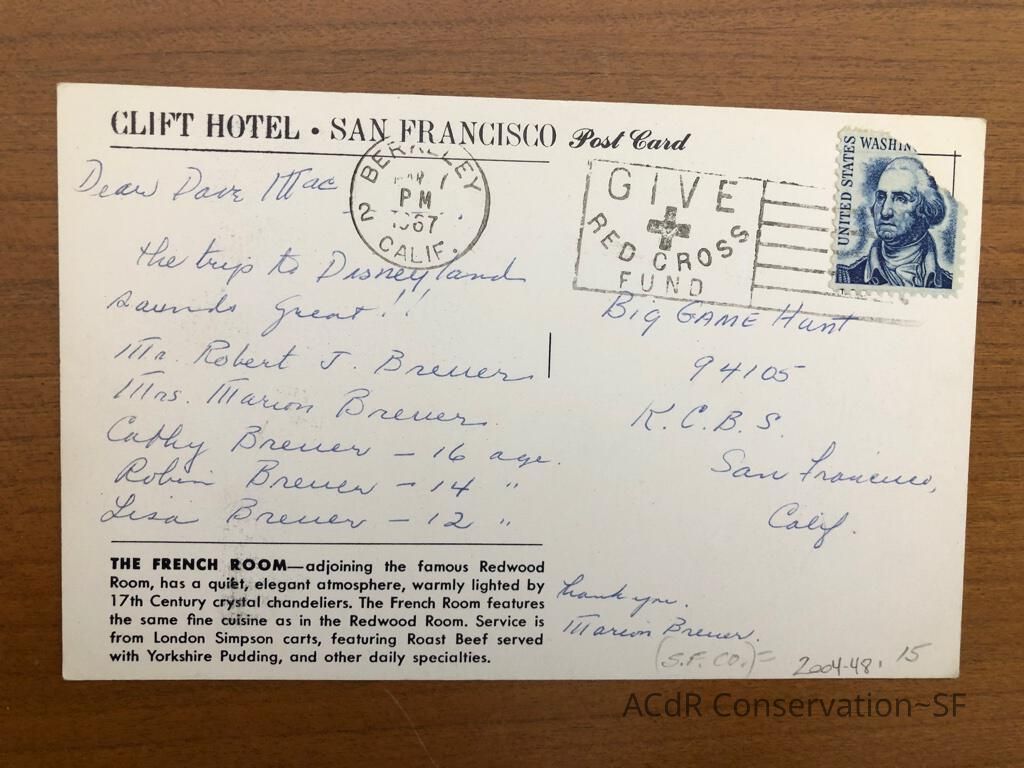 CLIFT HOTEL • SAN FRANCISCO Post Card
BERKELEY
PM
1967
CALIF.
GIVE
RED CROSS
FUND
UNITED STATES
WASHIN
Dear Dave Mac
the trip to Disneyland
sounds great!!
Mr. Robert J. Breuer
Mrs. Marion Breuer
Cathy Breuer - 16 age.
Robin Breuer - 14 "
Lisa Breuer - 12 "
Big GAME Hunt
94105
K.C.B.S.
San Francisco,
Calif.
THE FRENCH ROOM—adjoining the famous Redwood
Room, has a quiet, elegant atmosphere, warmly lighted by
17th Century crystal chandeliers. The French Room features
the same fine cuisine as in the Redwood Room. Service is
from London Simpson carts, featuring Roast Beef served
with Yorkshire Pudding, and other daily specialties.
thank you.
Marion Breuer.
(S.F. CO.)=
2004-48. 15
ACdR Conservation~SF